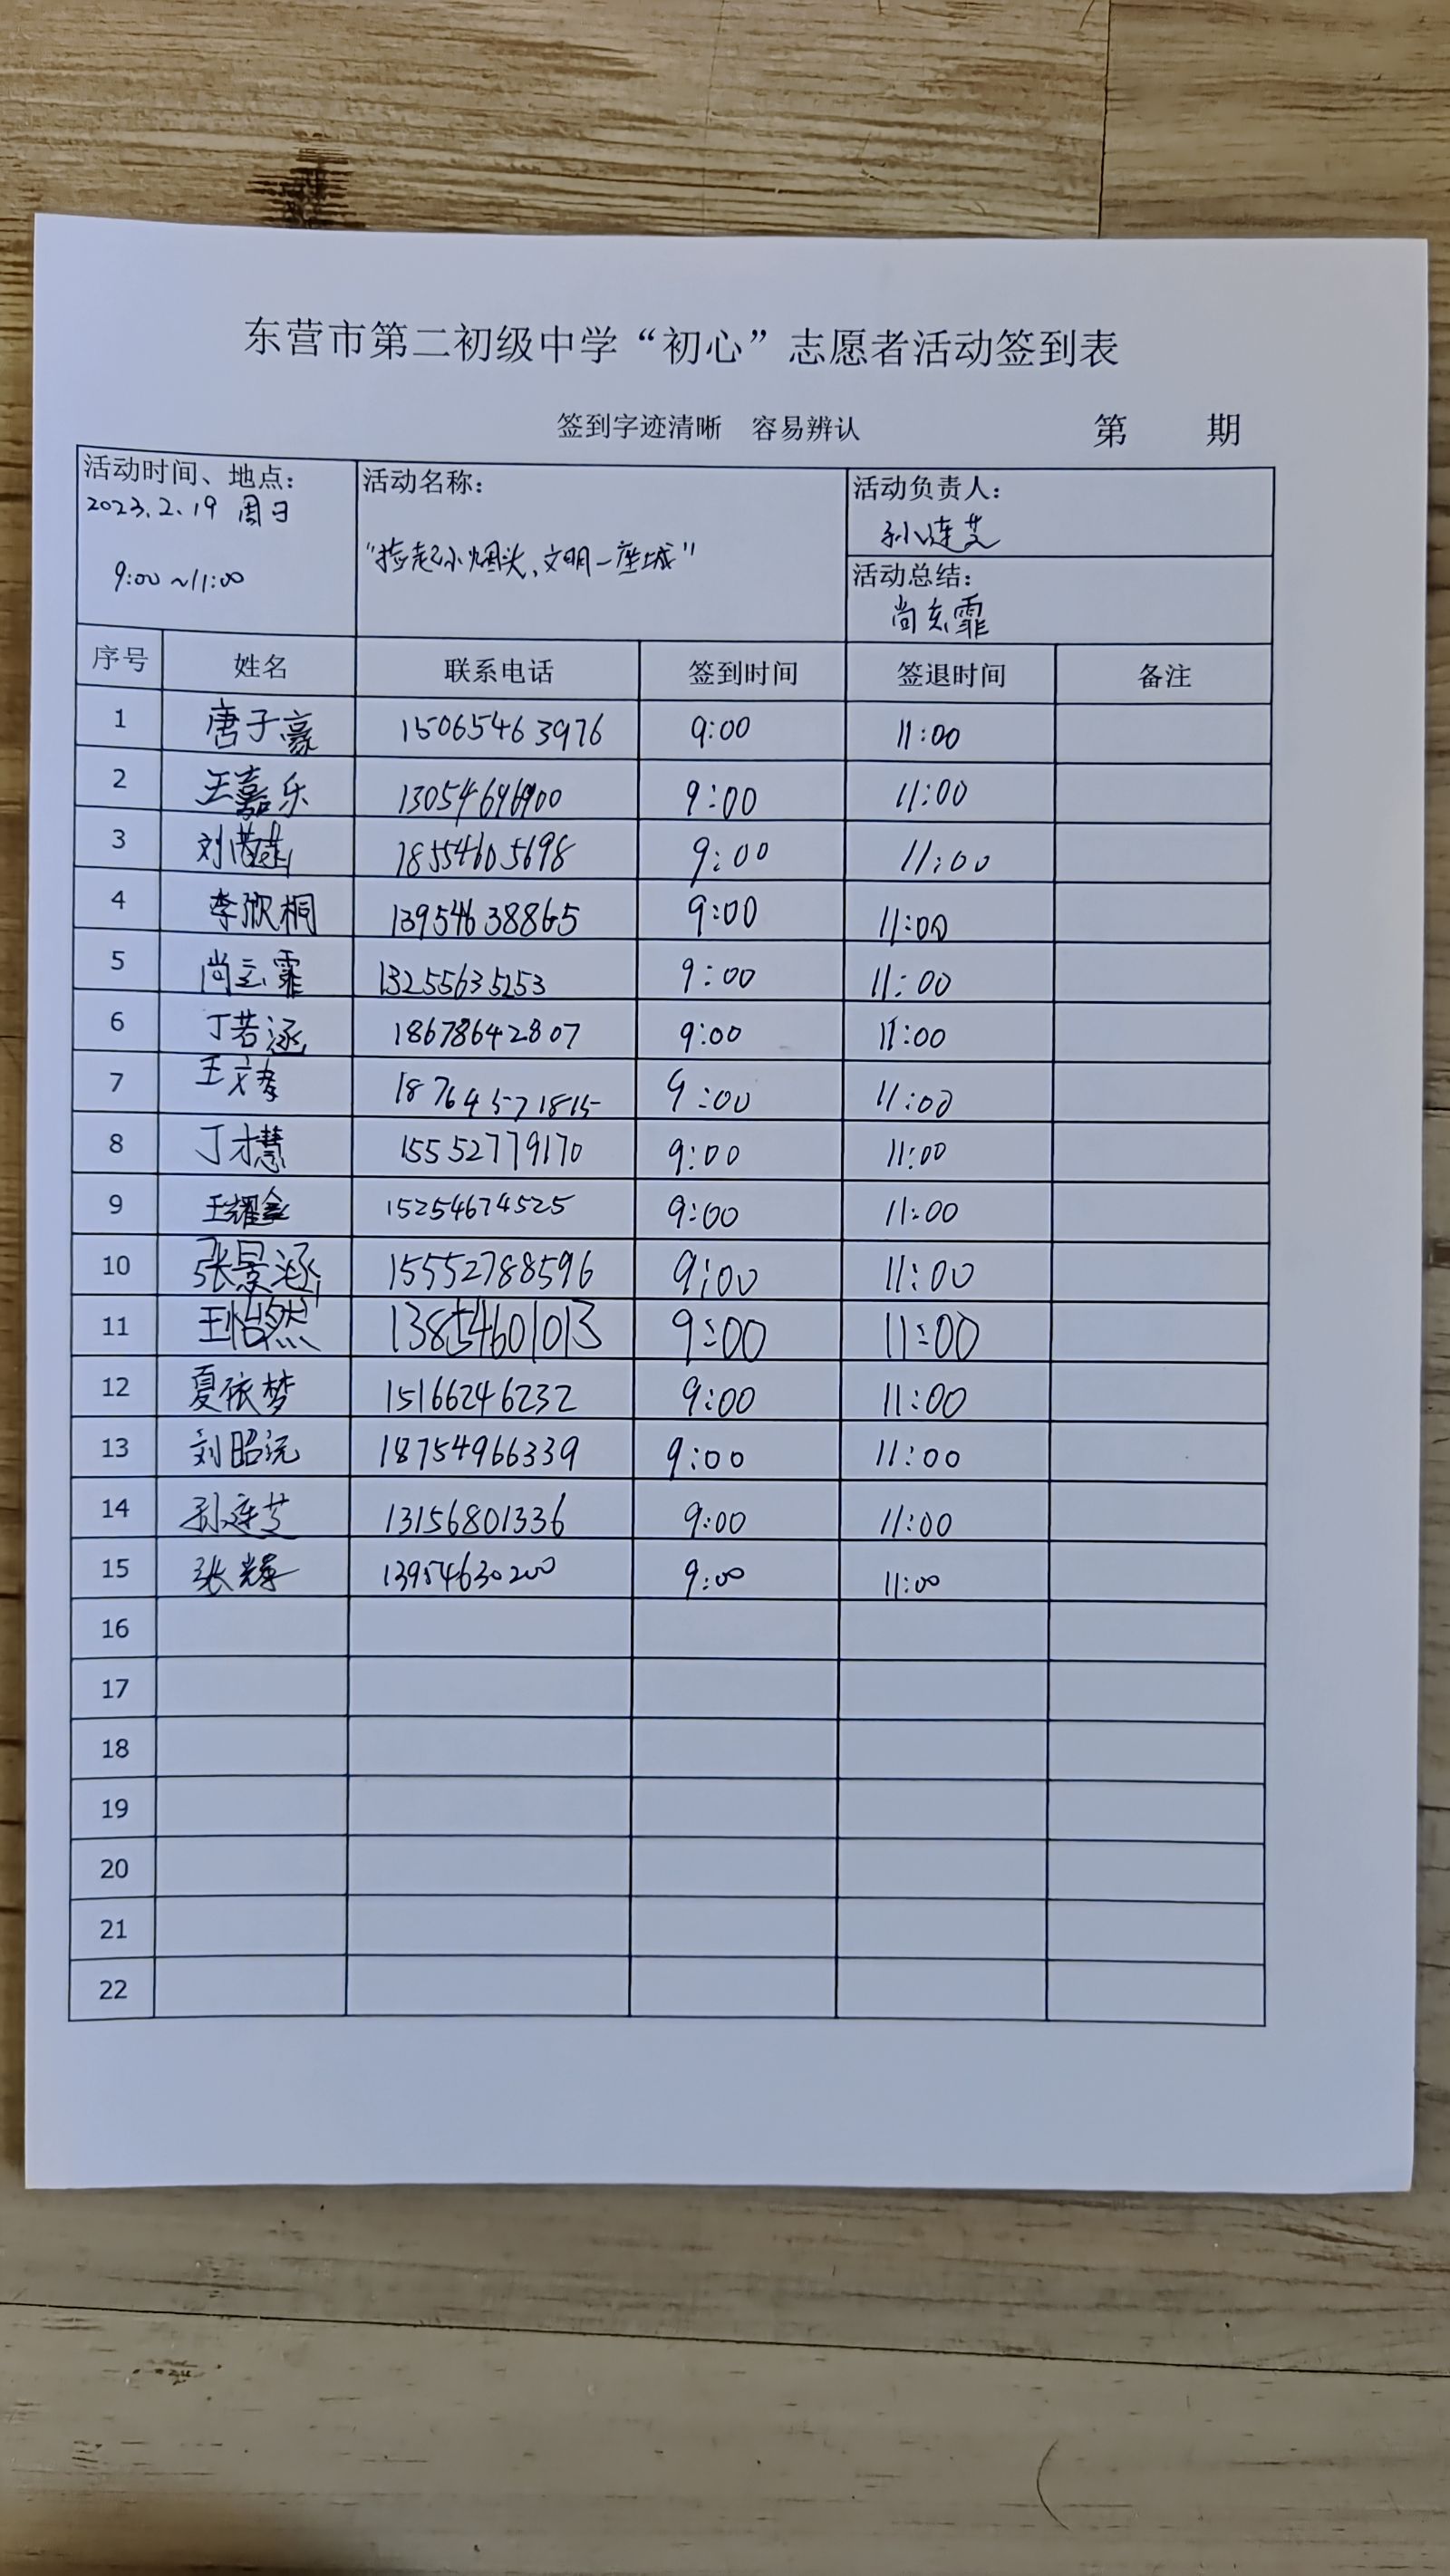 东营市第二初级中学“初心”志愿者活动签到表
签到字迹清晰 容易辨认 第 期
活动时间、地点： 活动名称： 活动负责人：
2023.2.19 周日
孙连芝
“捡起小烟头，文明一座城”
9:00~11:00
活动总结：
尚玄霏
序号 姓名 联系电话 签到时间 签退时间 备注
1 唐子豪 15065463976 9:00 11:00
2 王嘉乐 9:00 11:00
3 刘 18554605698 9:00 11:00
4 李欣桐 13954638865 9:00 11:00
5 尚玄霏 13255635253 9:00 11:00
6 丁若涵 18678642807 9:00 11:00
7 王文孝 18764571815 9:00 11:00
8 丁才慧 15552779170 9:00 11:00
9 王耀鑫 15254674525 9:00 11:00
10 张景涵 15552788596 9:00 11:00
11 王怡然 13854601013 9:00 11:00
12 夏依梦 15166246232 9:00 11:00
13 刘昭沅 18754966339 9:00 11:00
14 孙连芝 13156801336 9:00 11:00
15 张辉 13954630200 9:00 11:00
16
17
18
19
20
21
22